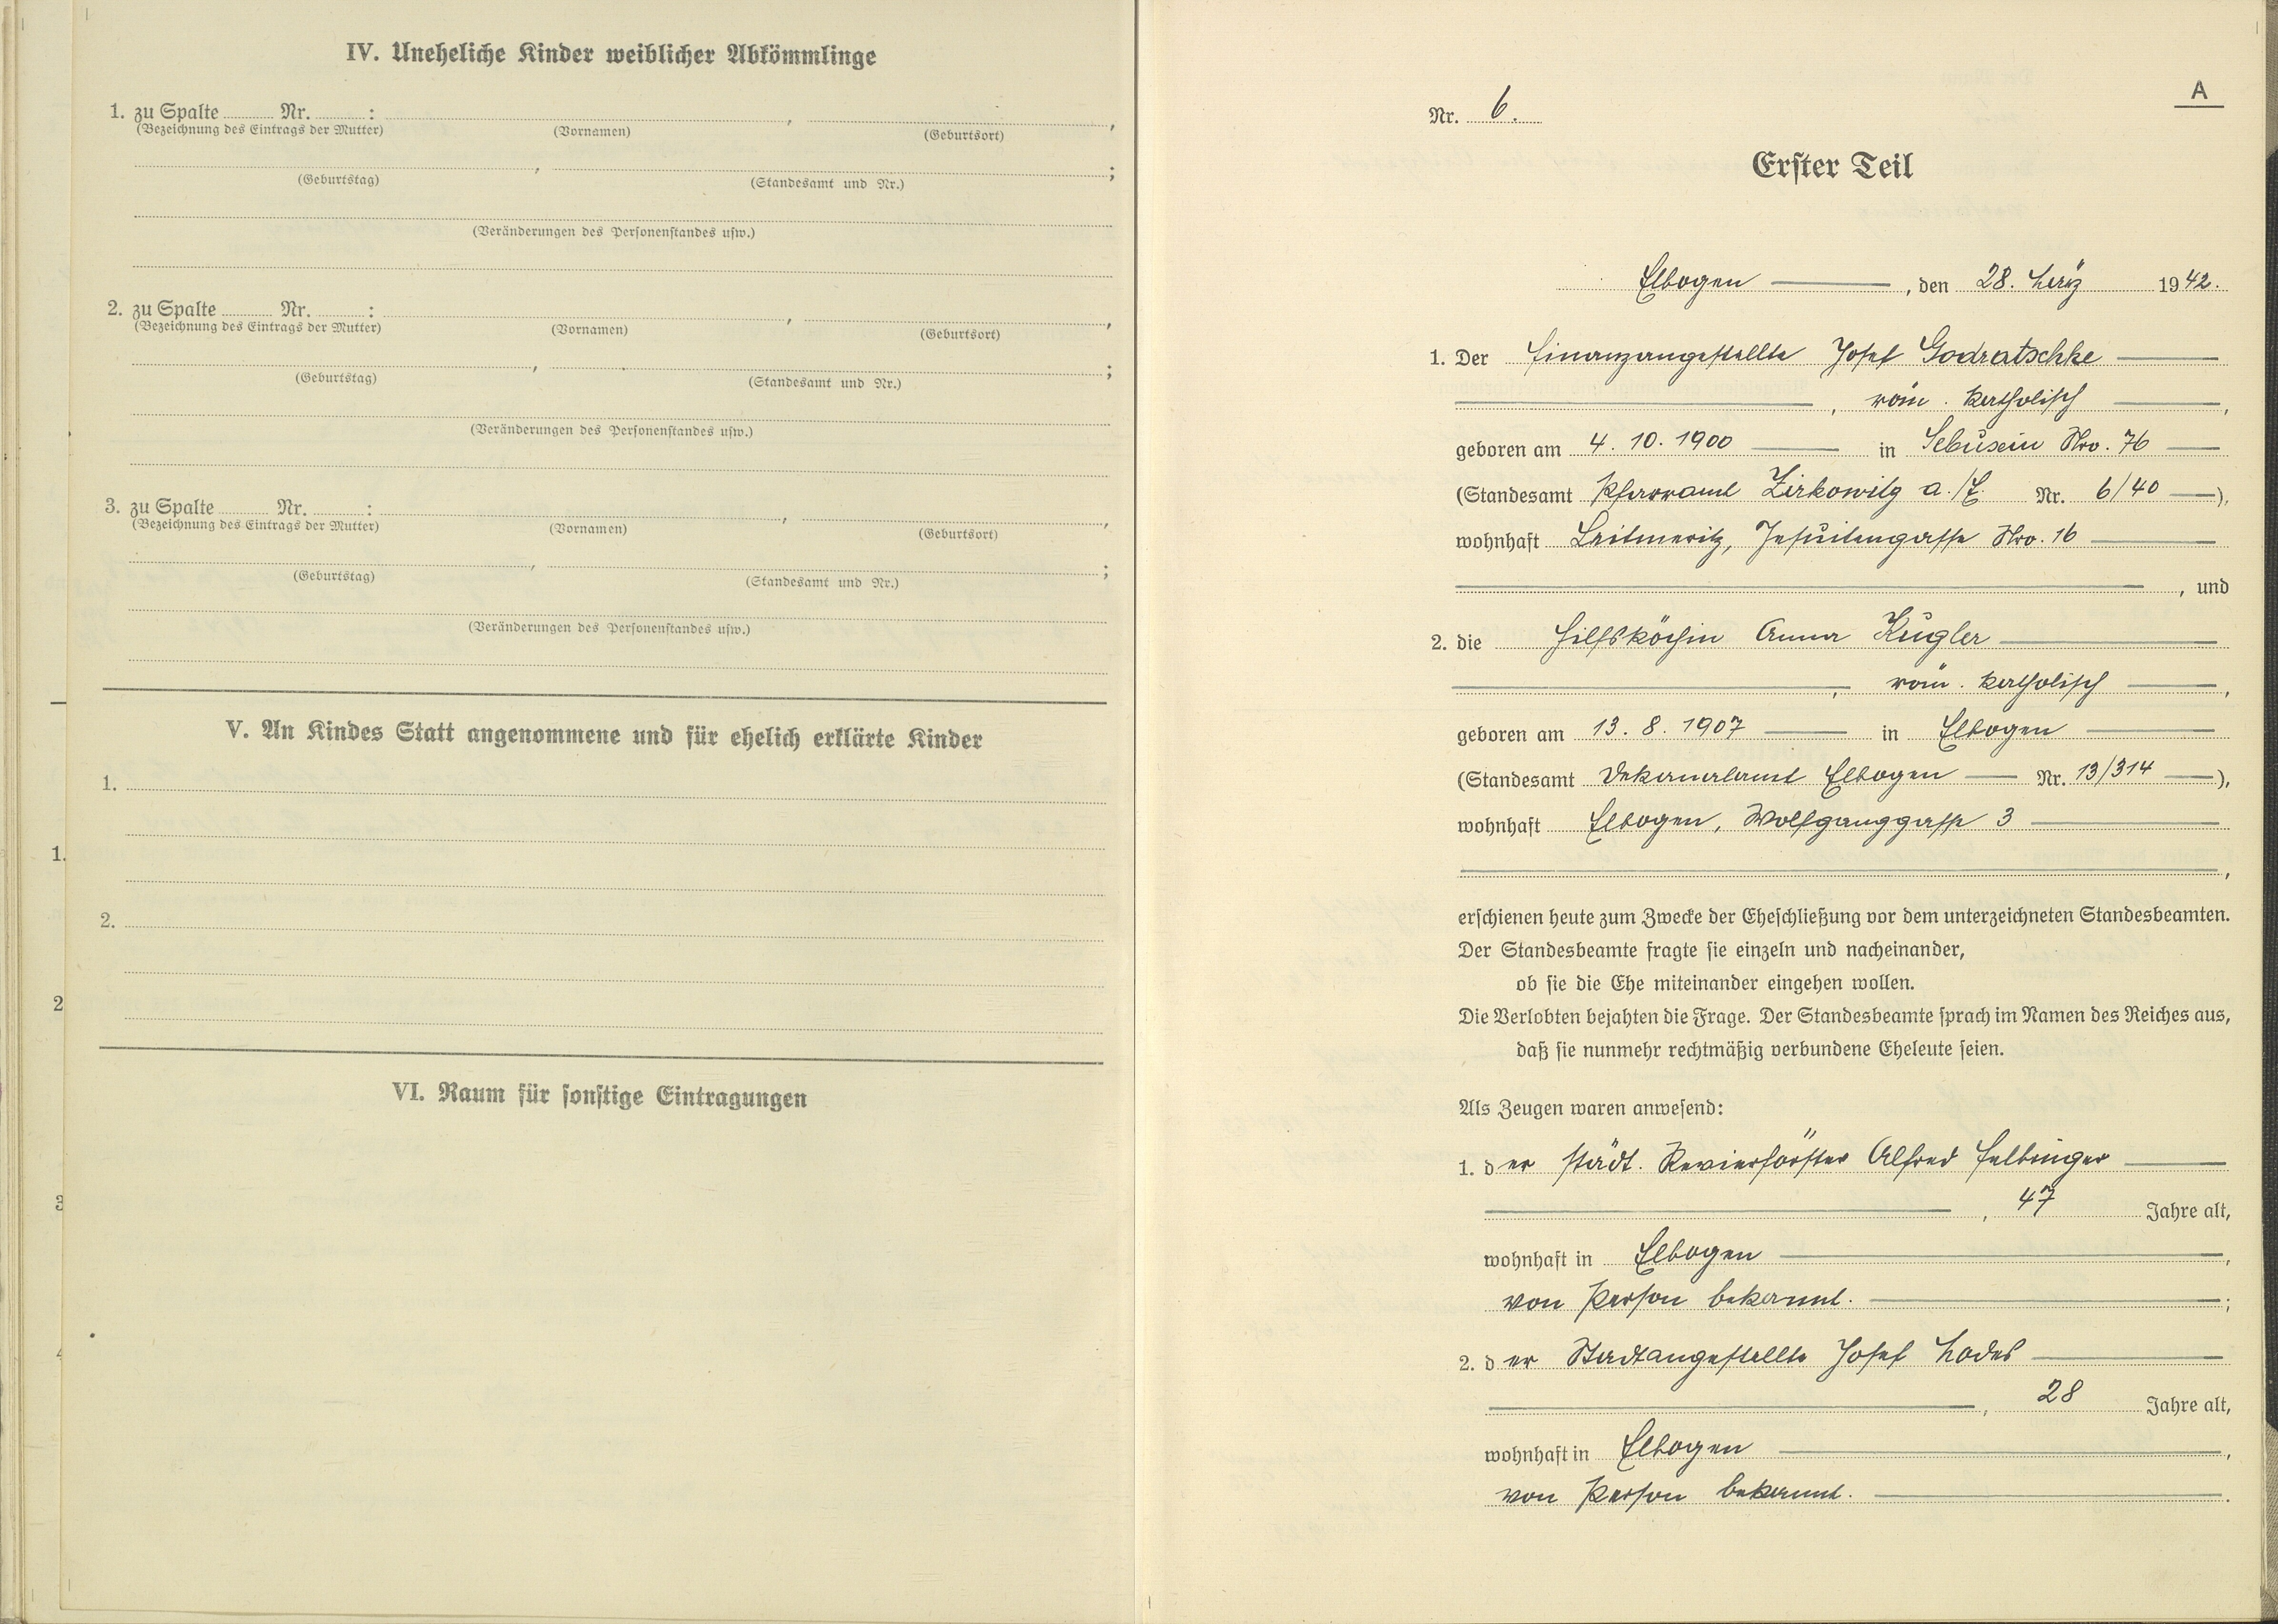 IV. Uneheliche Kinder weiblicher Abkömmlinge
1. zu Spalte ........ Nr. ........ :
(Bezeichnung des Eintrags der Mutter) (Vornamen) (Geburtsort)
(Geburtstag) (Standesamt und Nr.)
(Veränderungen des Personenstandes usw.)
2. zu Spalte ........ Nr. ........ :
(Bezeichnung des Eintrags der Mutter) (Vornamen) (Geburtsort)
(Geburtstag) (Standesamt und Nr.)
(Veränderungen des Personenstandes usw.)
3. zu Spalte ........ Nr. ........ :
(Bezeichnung des Eintrags der Mutter) (Vornamen) (Geburtsort)
(Geburtstag) (Standesamt und Nr.)
(Veränderungen des Personenstandes usw.)
V. An Kindes Statt angenommene und für ehelich erklärte Kinder
1.
2.
VI. Raum für sonstige Eintragungen
A
Nr. 6.
Erster Teil
Elbogen, den 28. März 1942.
1. Der Finanzangestellte Josef Godratschke
, röm. katholisch,
geboren am 4. 10. 1900 in Sebusein Nro. 76
(Standesamt Pfarramt Zirkowitz a./E. Nr. 6/40),
wohnhaft Leitmeritz, Jesuitengasse Nro. 16
, und
2. die Hilfsköchin Anna Kugler
, röm. katholisch,
geboren am 13. 8. 1907 in Elbogen
(Standesamt Dekanalamt Elbogen Nr. 13/314),
wohnhaft Elbogen, Wolfganggasse 3
,
erschienen heute zum Zwecke der Eheschließung vor dem unterzeichneten Standesbeamten.
Der Standesbeamte fragte sie einzeln und nacheinander,
ob sie die Ehe miteinander eingehen wollen.
Die Verlobten bejahten die Frage. Der Standesbeamte sprach im Namen des Reiches aus,
daß sie nunmehr rechtmäßig verbundene Eheleute seien.
Als Zeugen waren anwesend:
1. der städt. Revierförster Alfred Felbinger
, 47 Jahre alt,
wohnhaft in Elbogen,
von Person bekannt.;
2. der Stadtangestellte Josef Lodes
, 28 Jahre alt,
wohnhaft in Elbogen,
von Person bekannt.